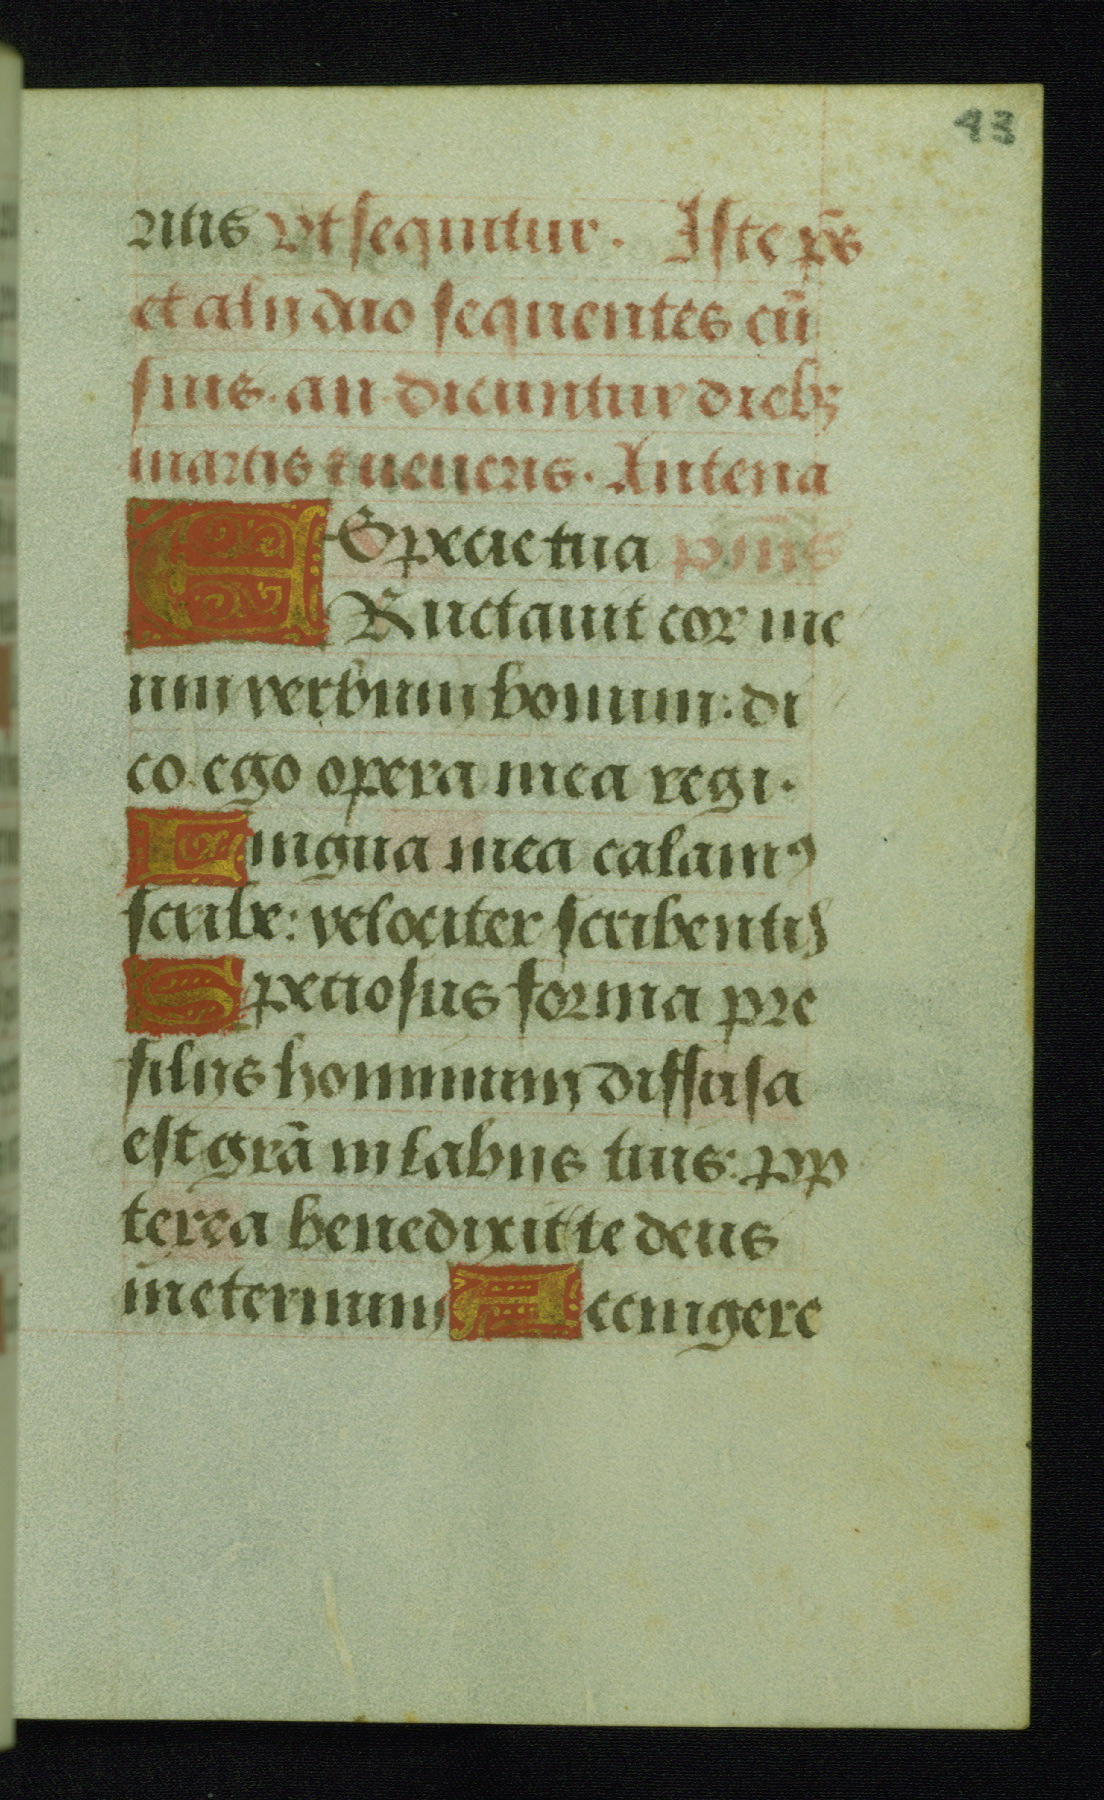 43
ritis vt sequitur. Iste ps̄
et alij duo sequentes cū
suis. an. dicuntur diebꝫ
martis ⁊ ueneris. Antena
Specie tua psmus
ERuctauit cor me
um verbum bonum: di
co ego opera mea regi.
Lingua mea calamꝰ
scribe: velociter scribentis
Speciosus forma pre
filijs hominum diffusa
est grā in labijs tuis: ꝓp
terea benedixit te deus
in eternum Accingere